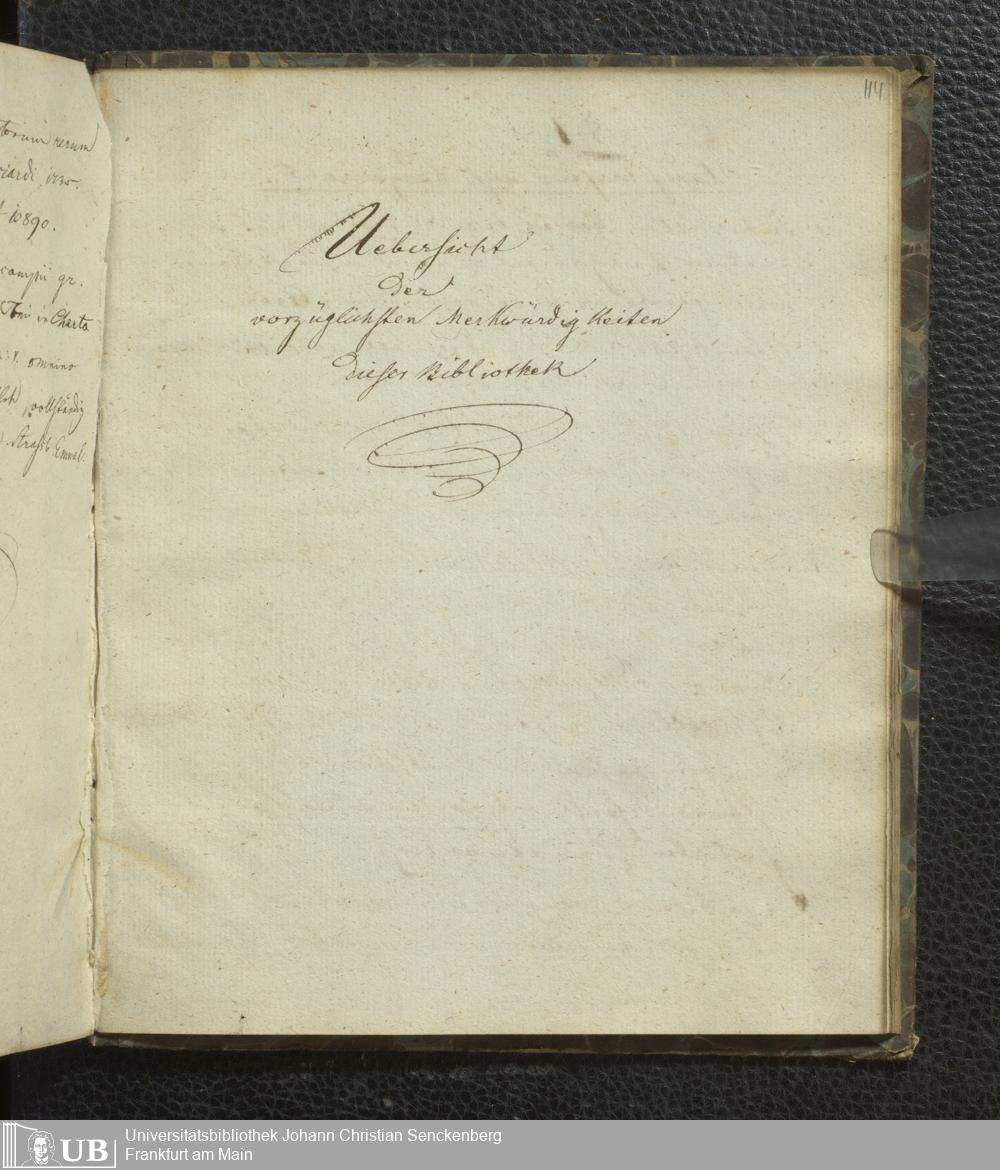 rerum
1735.
10890.
gr.
in Charta
omnino
vollständig
114
Uebersicht
der
vorzüglichsten Merkwürdigkeiten
dieser Bibliothek
UB
Universitätsbibliothek Johann Christian Senckenberg
Frankfurt am Main